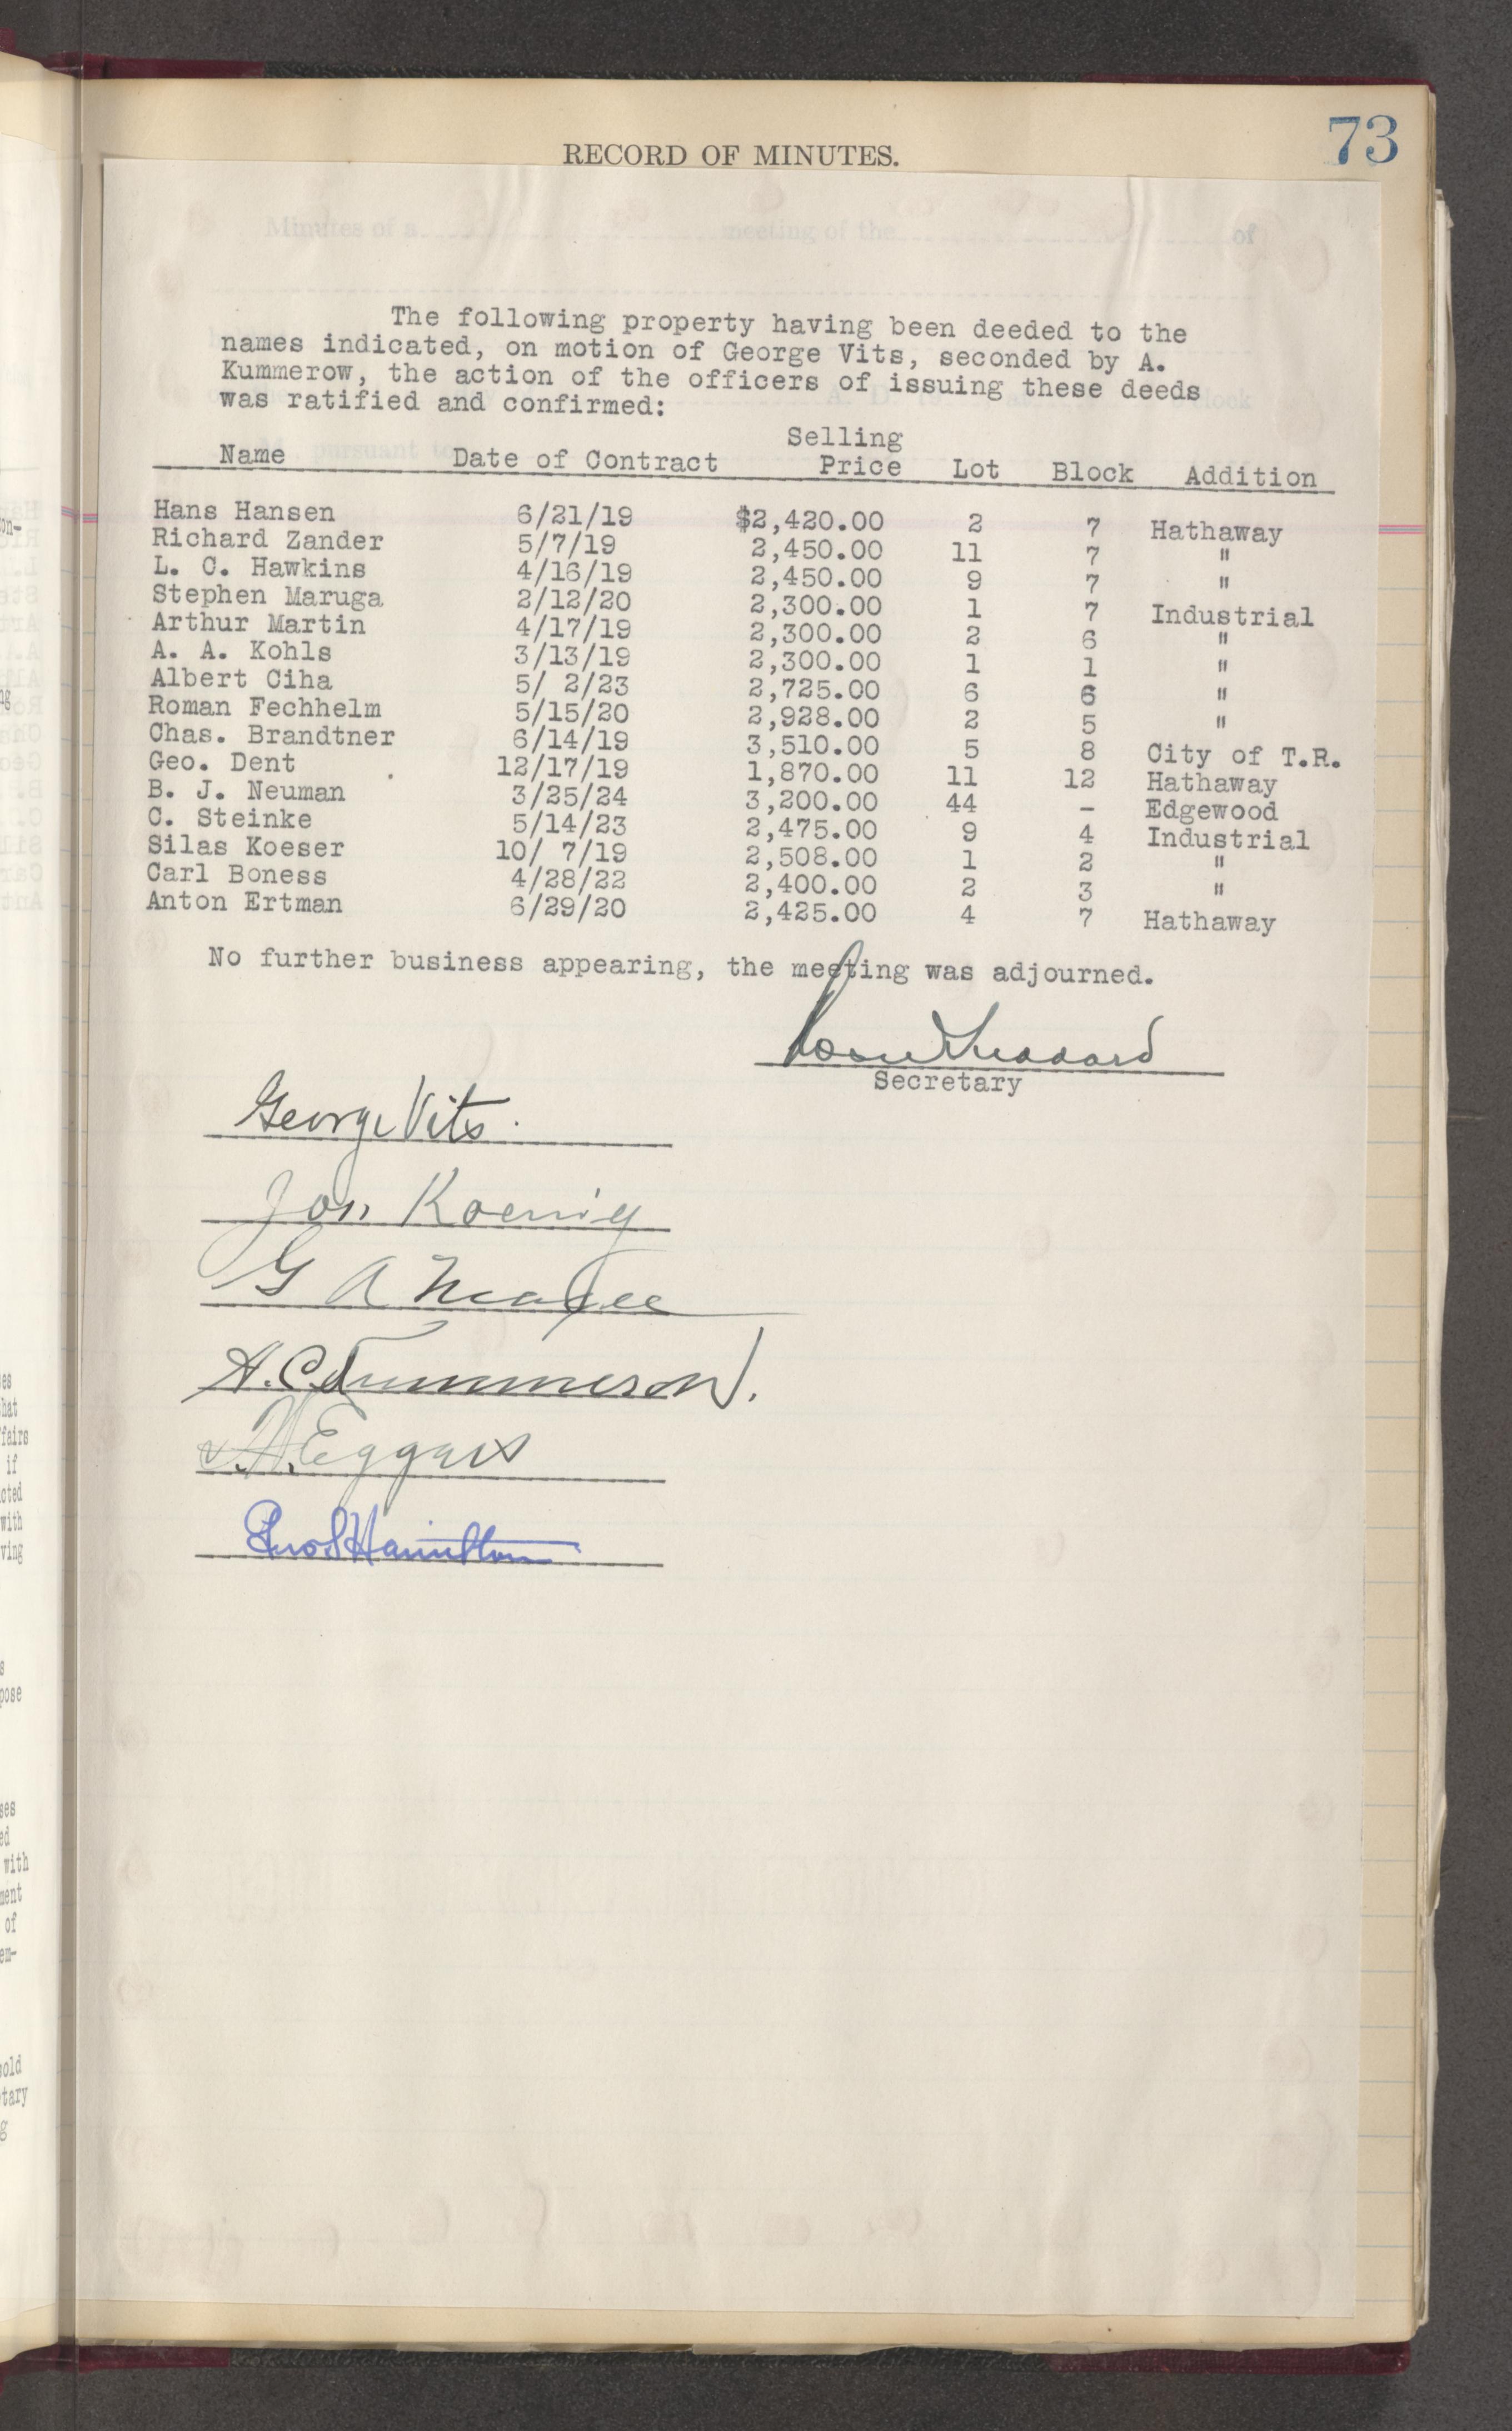 73
RECORD OF MINUTES.
Minutes of a meeting of the of
The following property having been deeded to the
names indicated, on motion of George Vits, seconded by A.
Kummerow, the action of the officers of issuing these deeds
was ratified and confirmed:
Name Date of Contract Selling Price Lot Block Addition
Hans Hansen 6/21/19 $2,420.00 2 7 Hathaway
Richard Zander 5/7/19 2,450.00 11 7 "
L. C. Hawkins 4/16/19 2,450.00 9 7 "
Stephen Maruga 2/12/20 2,300.00 1 7 Industrial
Arthur Martin 4/17/19 2,300.00 2 6 "
A. A. Kohls 3/13/19 2,300.00 1 1 "
Albert Ciha 5/ 2/23 2,725.00 6 6 "
Roman Fechhelm 5/15/20 2,928.00 2 5 "
Chas. Brandtner 6/14/19 3,510.00 5 8 City of T.R.
Geo. Dent 12/17/19 1,870.00 11 12 Hathaway
B. J. Neuman 3/25/24 3,200.00 44 - Edgewood
C. Steinke 5/14/23 2,475.00 9 4 Industrial
Silas Koeser 10/ 7/19 2,508.00 1 2 "
Carl Boness 4/28/22 2,400.00 2 3 "
Anton Ertman 6/29/20 2,425.00 4 7 Hathaway
No further business appearing, the meeting was adjourned.
Secretary
George Vits.
Koenig
G A
A. C. Kummerow.
Eggers
Hamilton